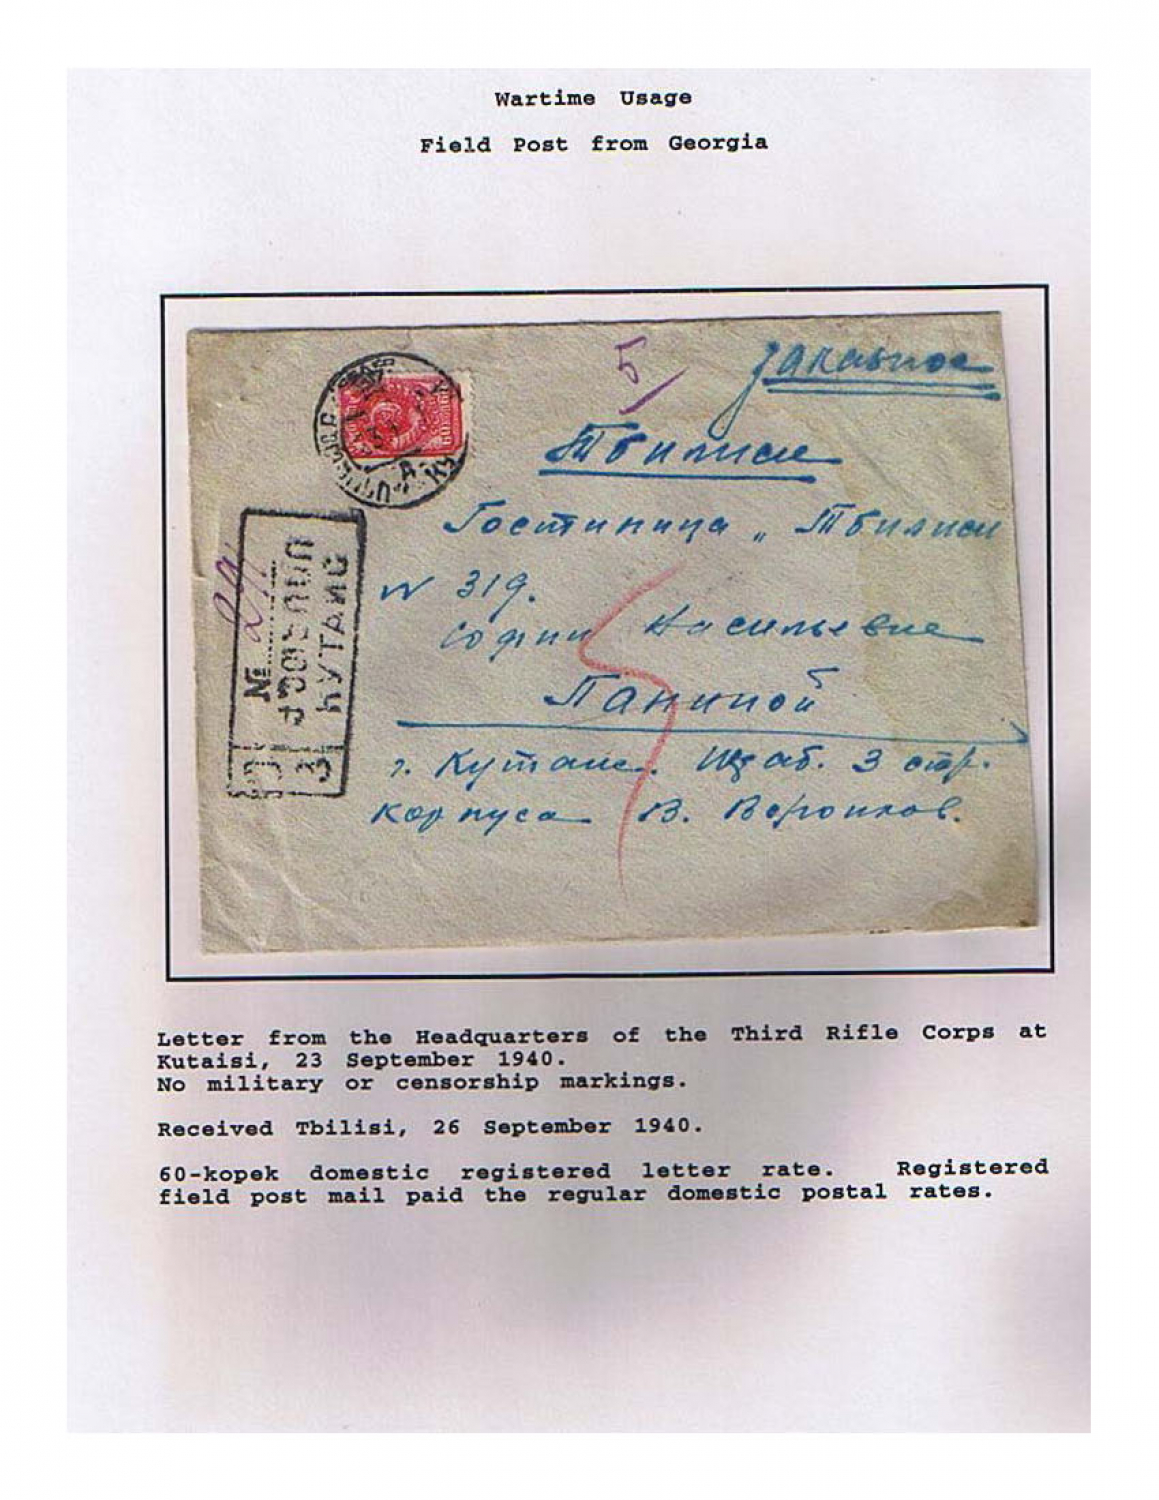 Wartime Usage
Field Post from Georgia
5
Заказное
Тбилиси
Гостиница „Тбилиси
N 319.
Софии Васильевне
Паниной
г. Кутаис. Штаб. 3 стр.
Корпуса В. Воронков.
№ 29
ᲥᲣᲗᲐᲘᲡᲘ
З КУТАИС
Letter from the Headquarters of the Third Rifle Corps at
Kutaisi, 23 September 1940.
No military or censorship markings.
Received Tbilisi, 26 September 1940.
60-kopek domestic registered letter rate. Registered
field post mail paid the regular domestic postal rates.